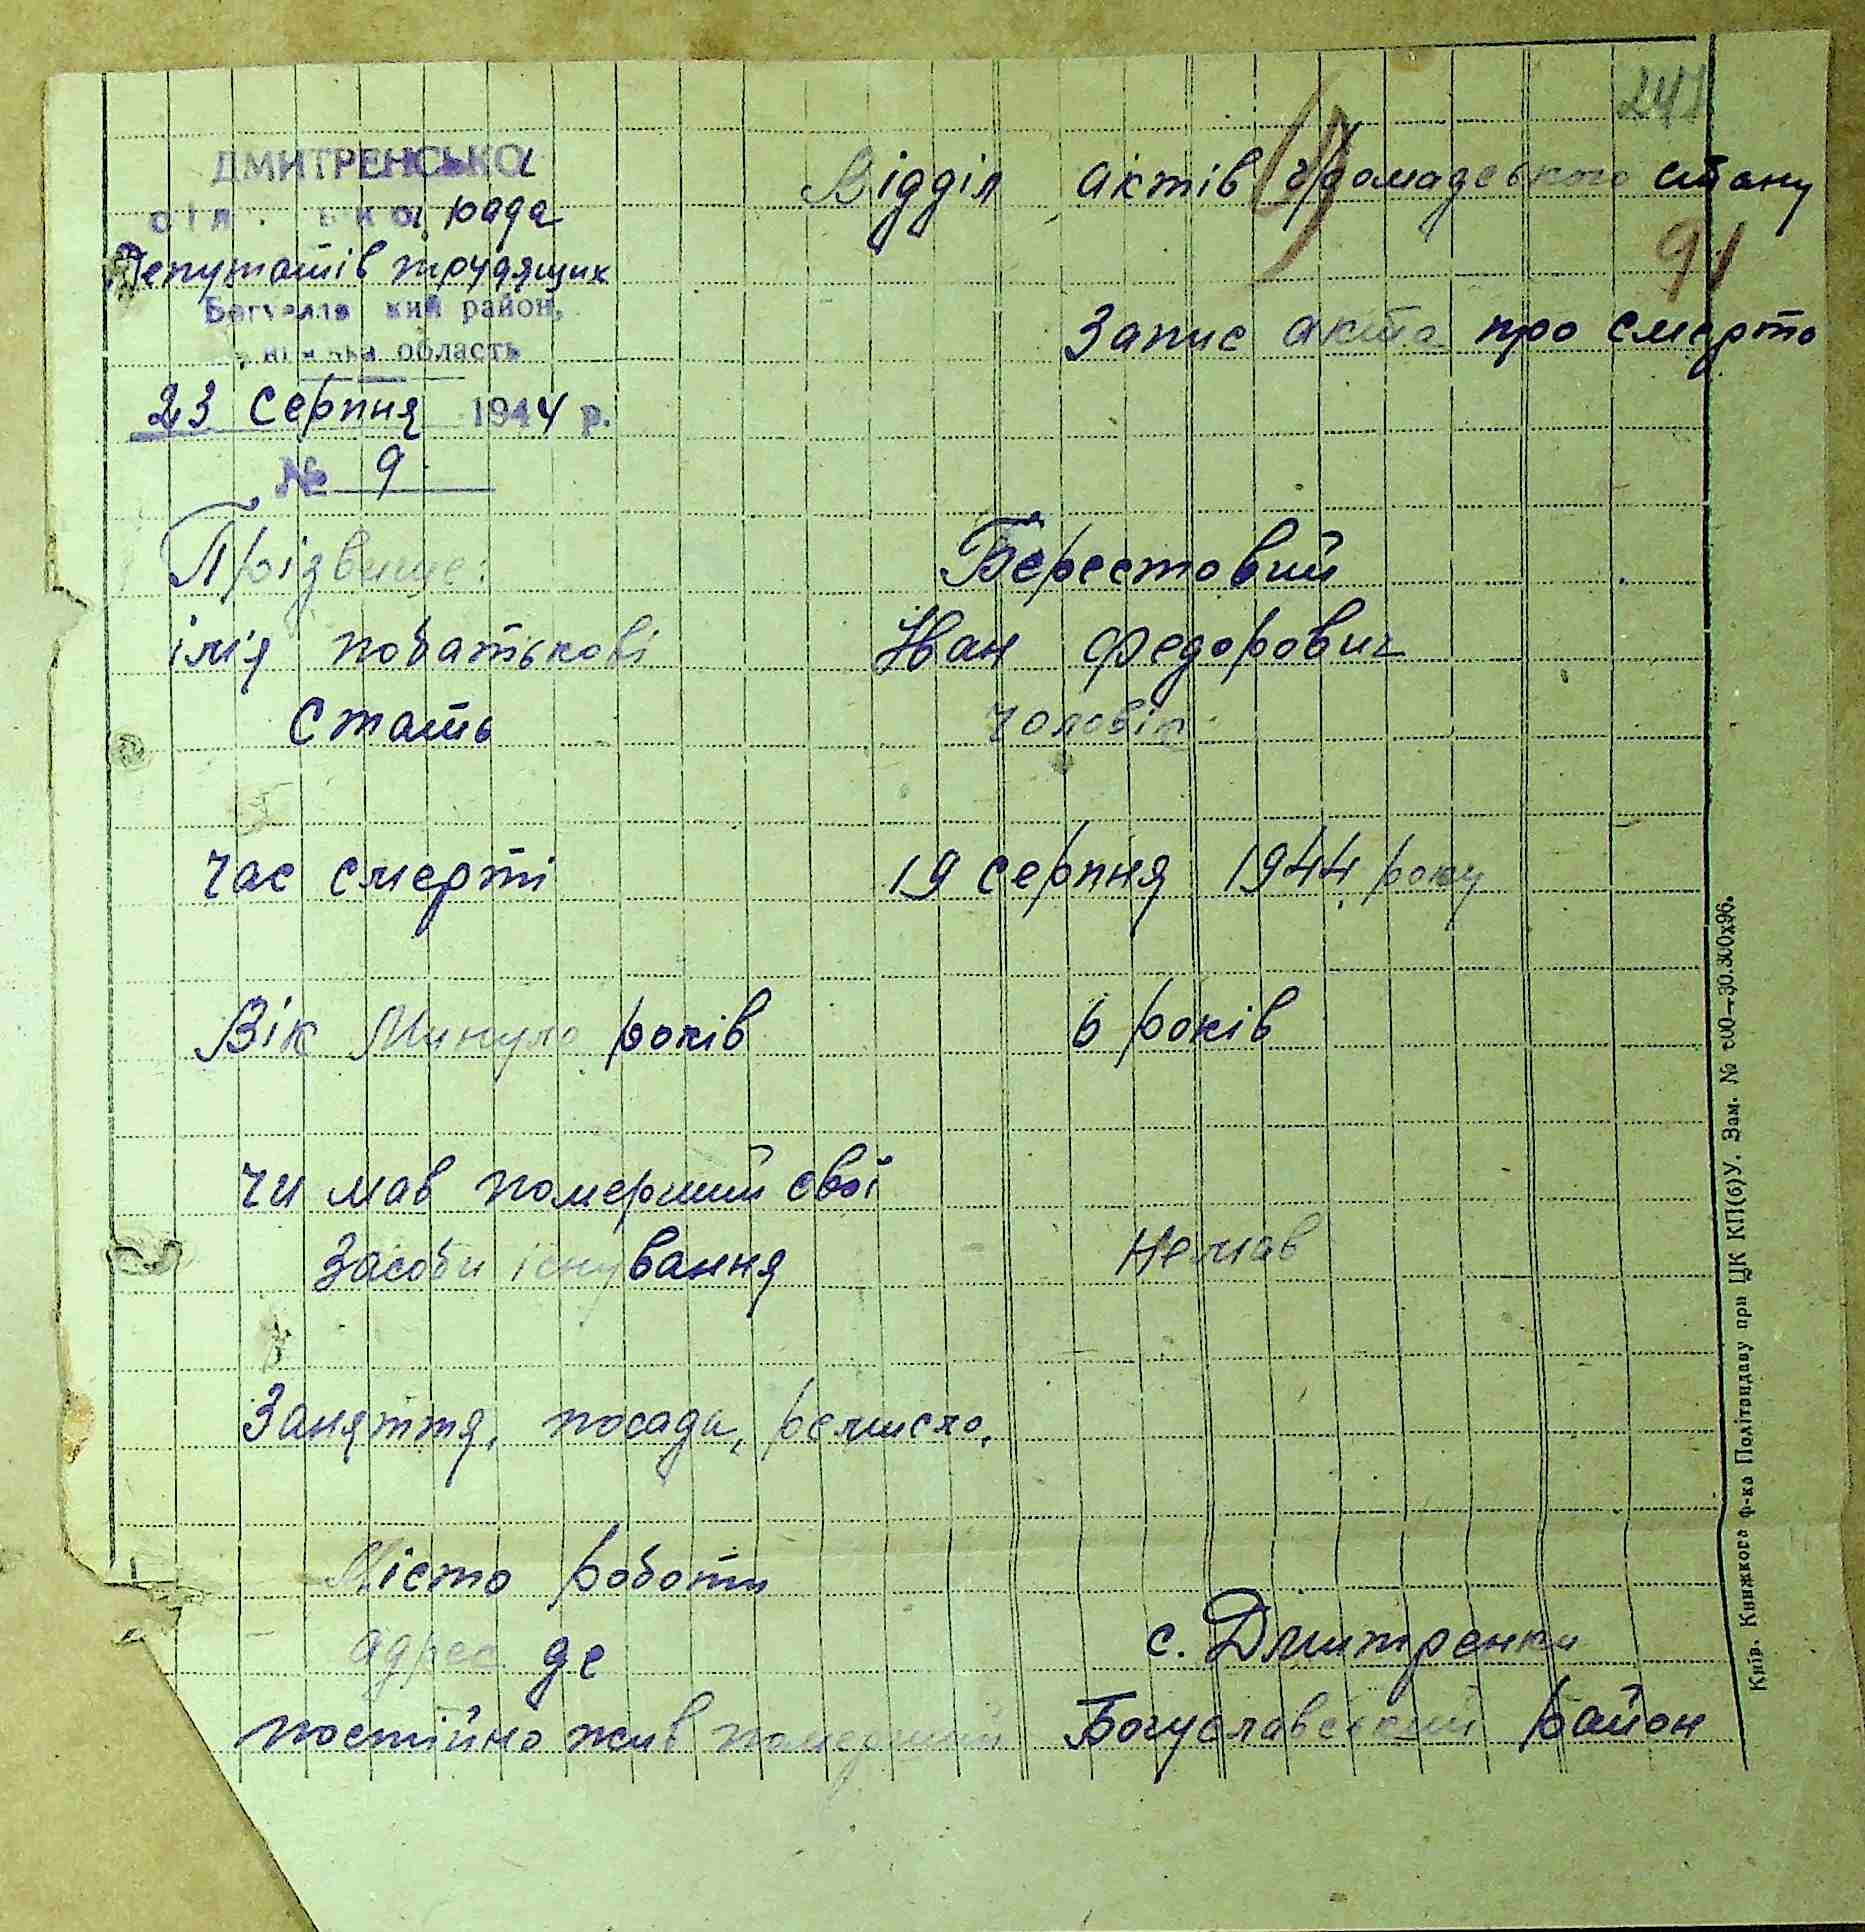 247
ДМИТРЕНСЬКОІ
рада
Депутатів трудящих
район,
область
23 серпня 1944 р.
№ 9
Відділ актів громадського стану
91
Запис акта про смерть
Прізвище: Берестовий
ім'я побатькові Іван Федорович
Стать чоловік
Час смерті 19 серпня 1944 року
Вік Минуло років 6 років
Чи мав померший свої
Засоби існування Немав
Заняття, посада, ремисло,
Місто роботи
адрес де с. Дмитренки
постійно жив померший Богуславський район
Київ. Книжкова ф-ка Політвидаву при ЦК КП(б)У. Зам. №